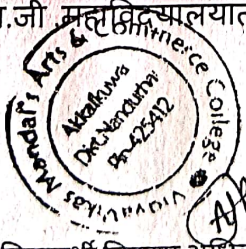 .जी महाविद्यालयात
Vidya Vikas Mandal's Arts & Commerce College
Akkalkuwa
Dist. Nandurbar
Pin-425412